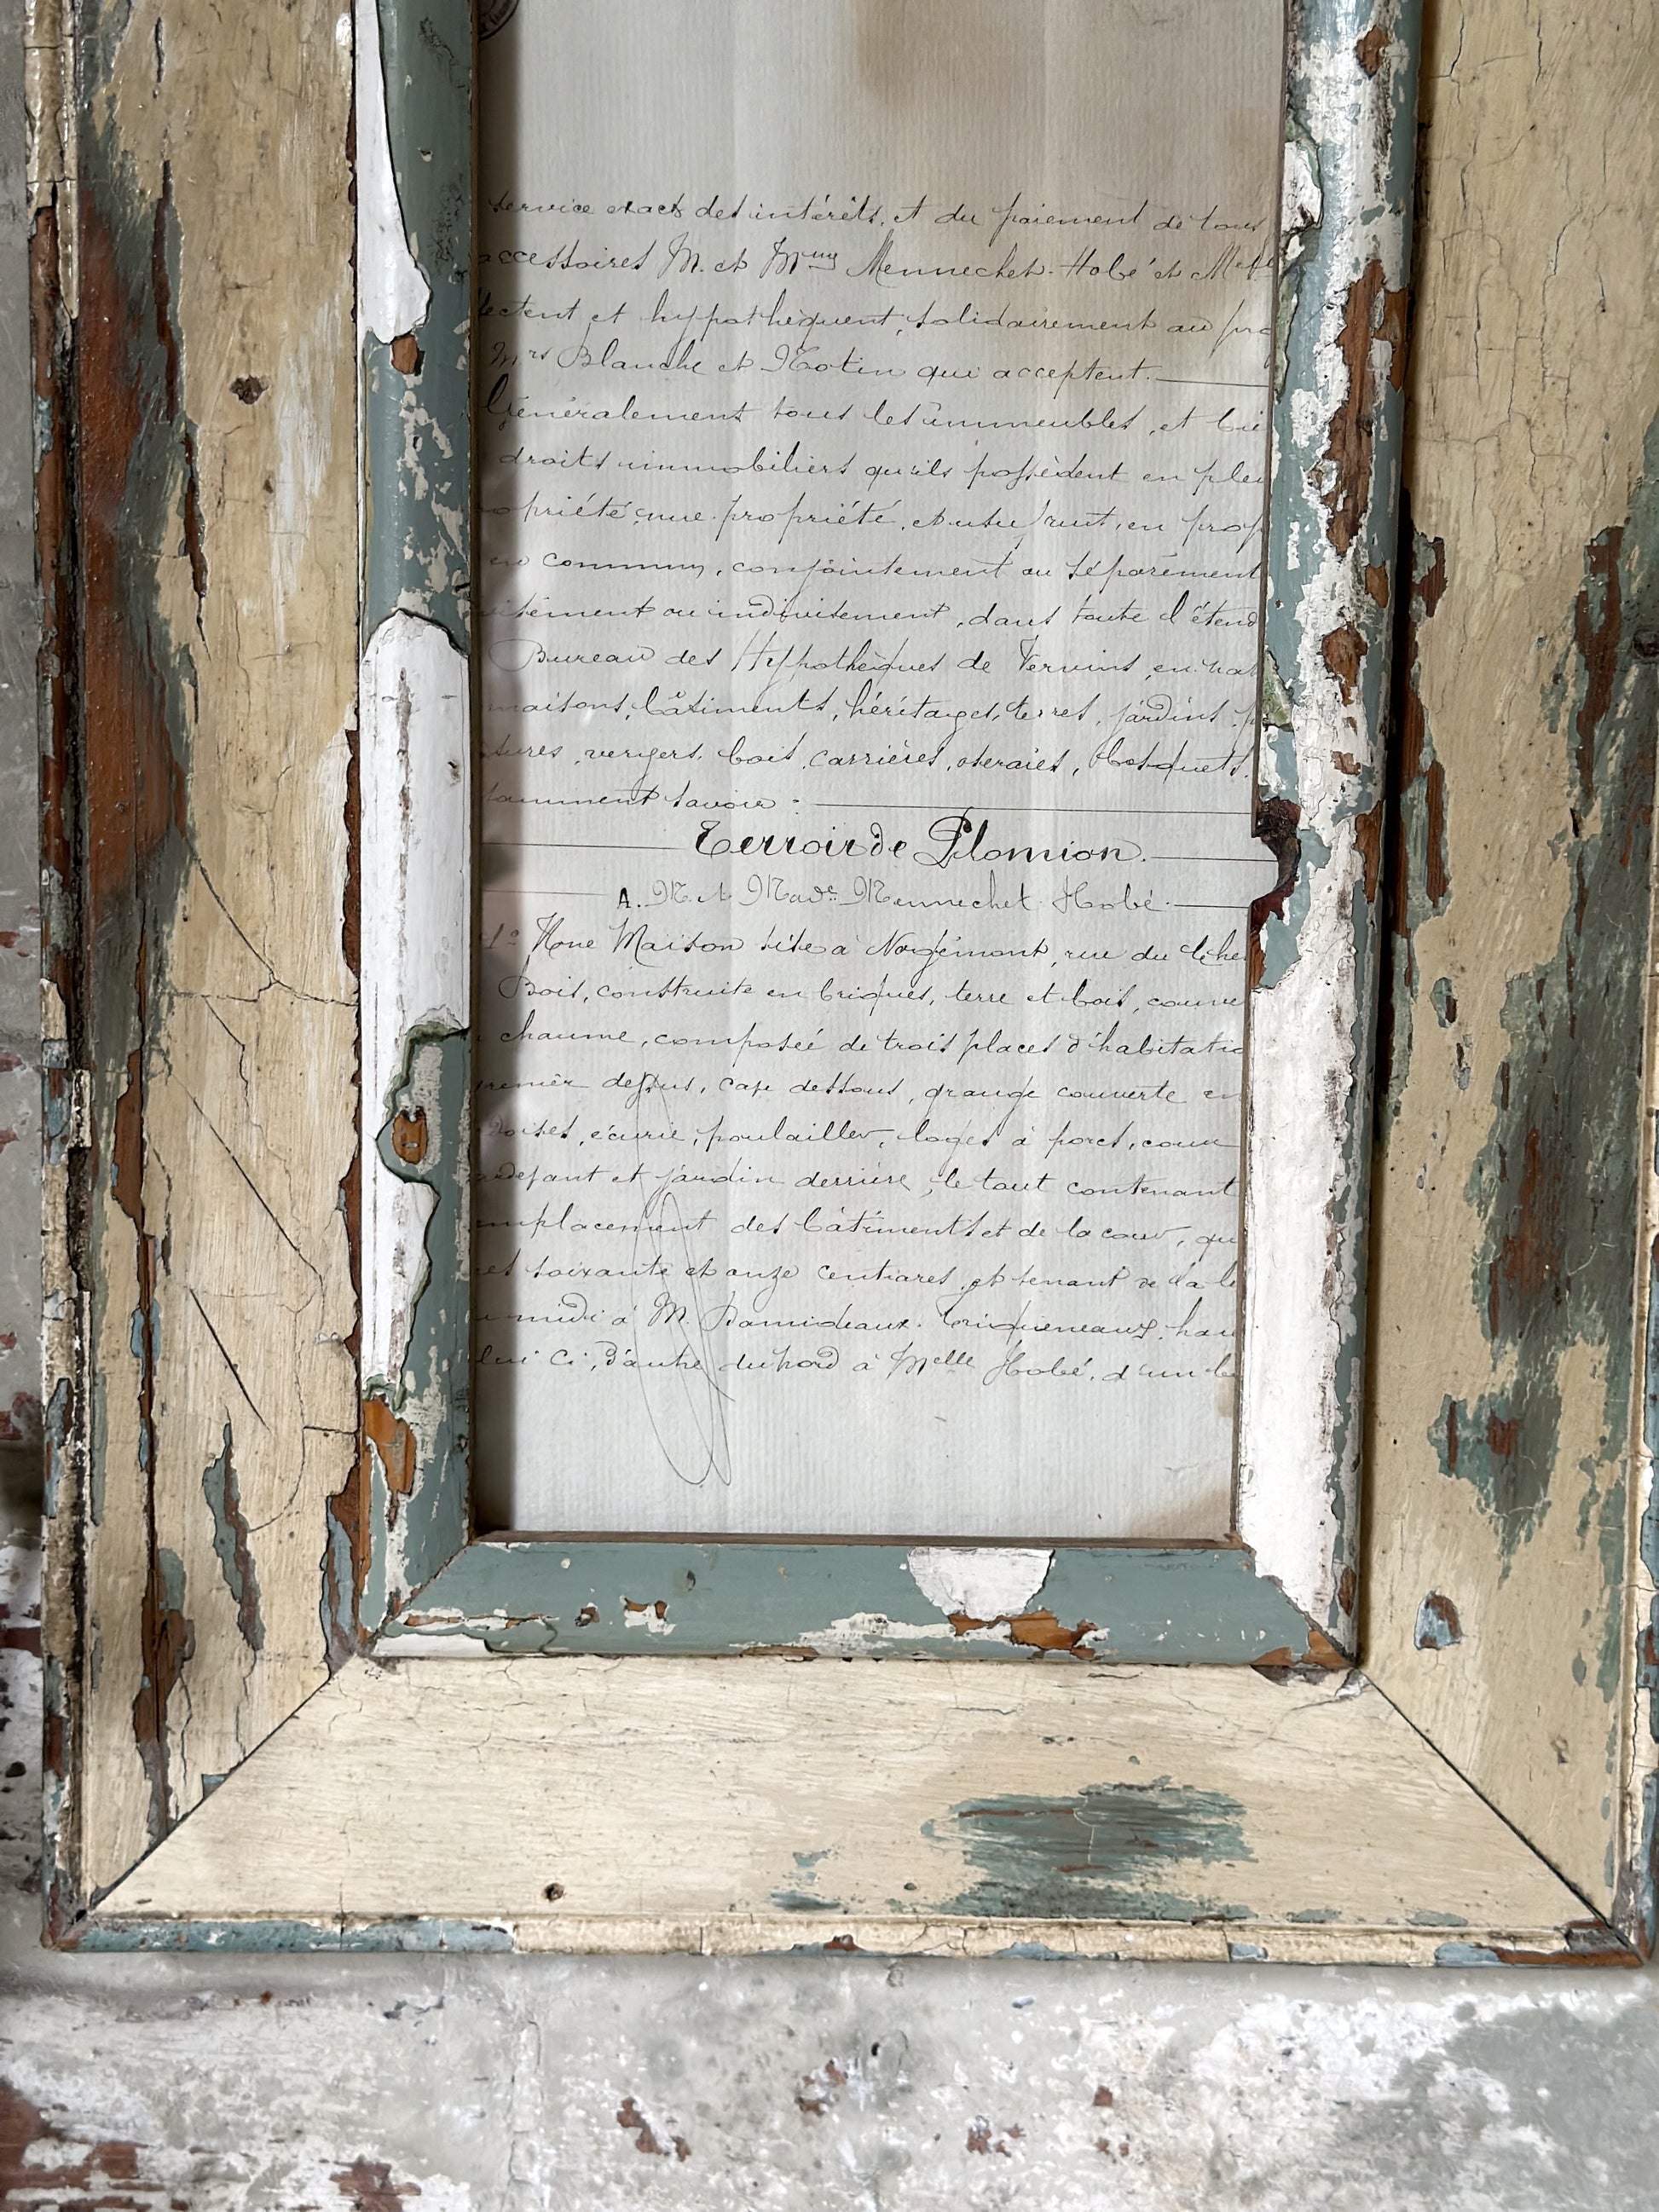 service exact des intérêts, et du paiement de tous
accessoires M. et Mme Mennechet-Hobé et Melle
ectent et hypothèquent, solidairement au pro
Mrs Blanche et Notin qui acceptent.
Généralement tous les immeubles, et bi
droits immobiliers qu'ils possèdent en plei
opriété, nue-propriété, et usufruit, en prop
en commun, conjointement ou séparément
isément ou indivisement, dans toute l'étend
Bureau des Hypothèques de Vervins, en nat
maisons, bâtiments, héritages, terres, jardins, p
tures, vergers, bois, carrières, oseraies, bosquets,
tamment savoir :
Terroir de Plomion.
A. M. et Made Mennechet-Hobé.
1o Une Maison sise à Nogémont, rue du Che
Bois, construite en briques, terre et bois, couve
chaume, composée de trois places d'habitatio
renier dessus, cave dessous, grange couverte en
doises, écurie, poulailler, loges à porcs, cour
devant et jardin derrière, le tout contenant
emplacement des bâtiments et de la cour, qu
res soixante et onze centiares, et tenant de la
midi à M.
lui ci, d'autre du nord à Melle Hobé, d'un b